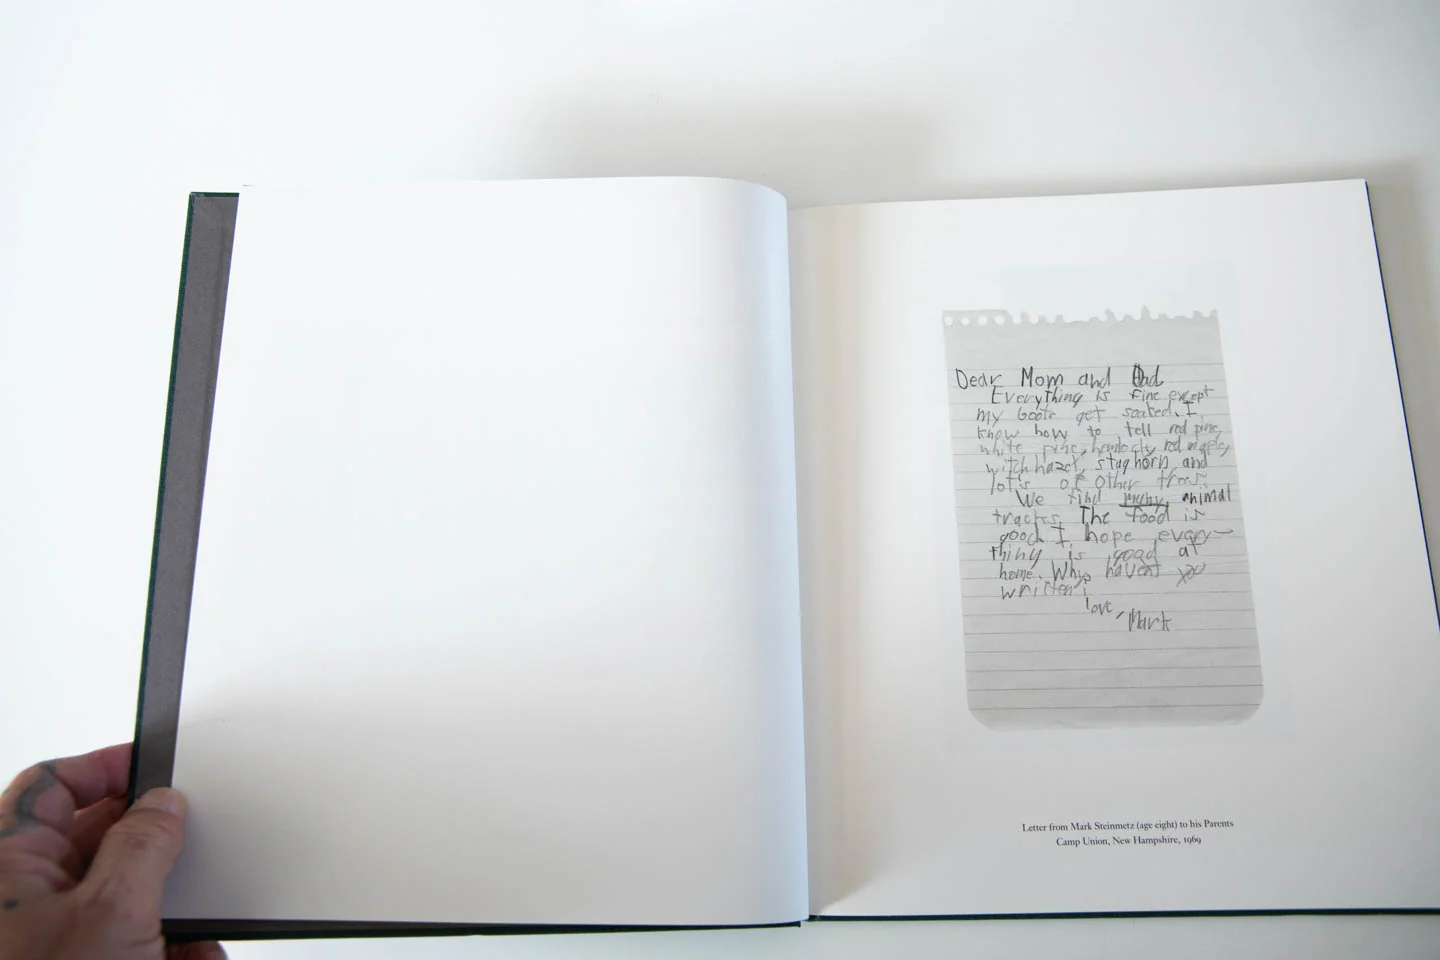 Dear Mom and Dad
Everything is fine except
my boots get soaked. I
know how to tell red pine,
white pine, hemlock, red maple,
witchhazel, staghorn and
lot's of other trees.
We find many animal
tracks. The food is
good I hope every-
thing is good at
home. Why havent you
written?
love,
Mark
Letter from Mark Steinmetz (age eight) to his Parents
Camp Union, New Hampshire, 1969